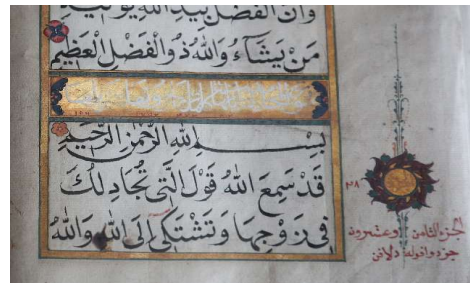 وَأَنَّ الْفَضْلَ بِيَدِ اللَّهِ يُؤْتِيهِ
مَنْ يَشَاءُ وَاللَّهُ ذُو الْفَضْلِ الْعَظِيمِ
بِسْمِ اللَّهِ الرَّحْمَٰنِ الرَّحِيمِ
قَدْ سَمِعَ اللَّهُ قَوْلَ الَّتِي تُجَادِلُكَ
فِي زَوْجِهَا وَتَشْتَكِي إِلَى اللَّهِ وَاللَّهُ
٢٨
الجزء الثامن وعشرون